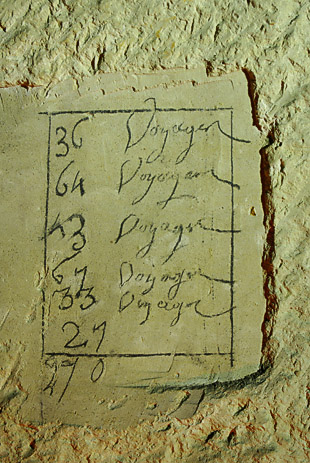 36 Voyages
64 Voyages
43 Voyages
67 Voyages
33 Voyages
27
270